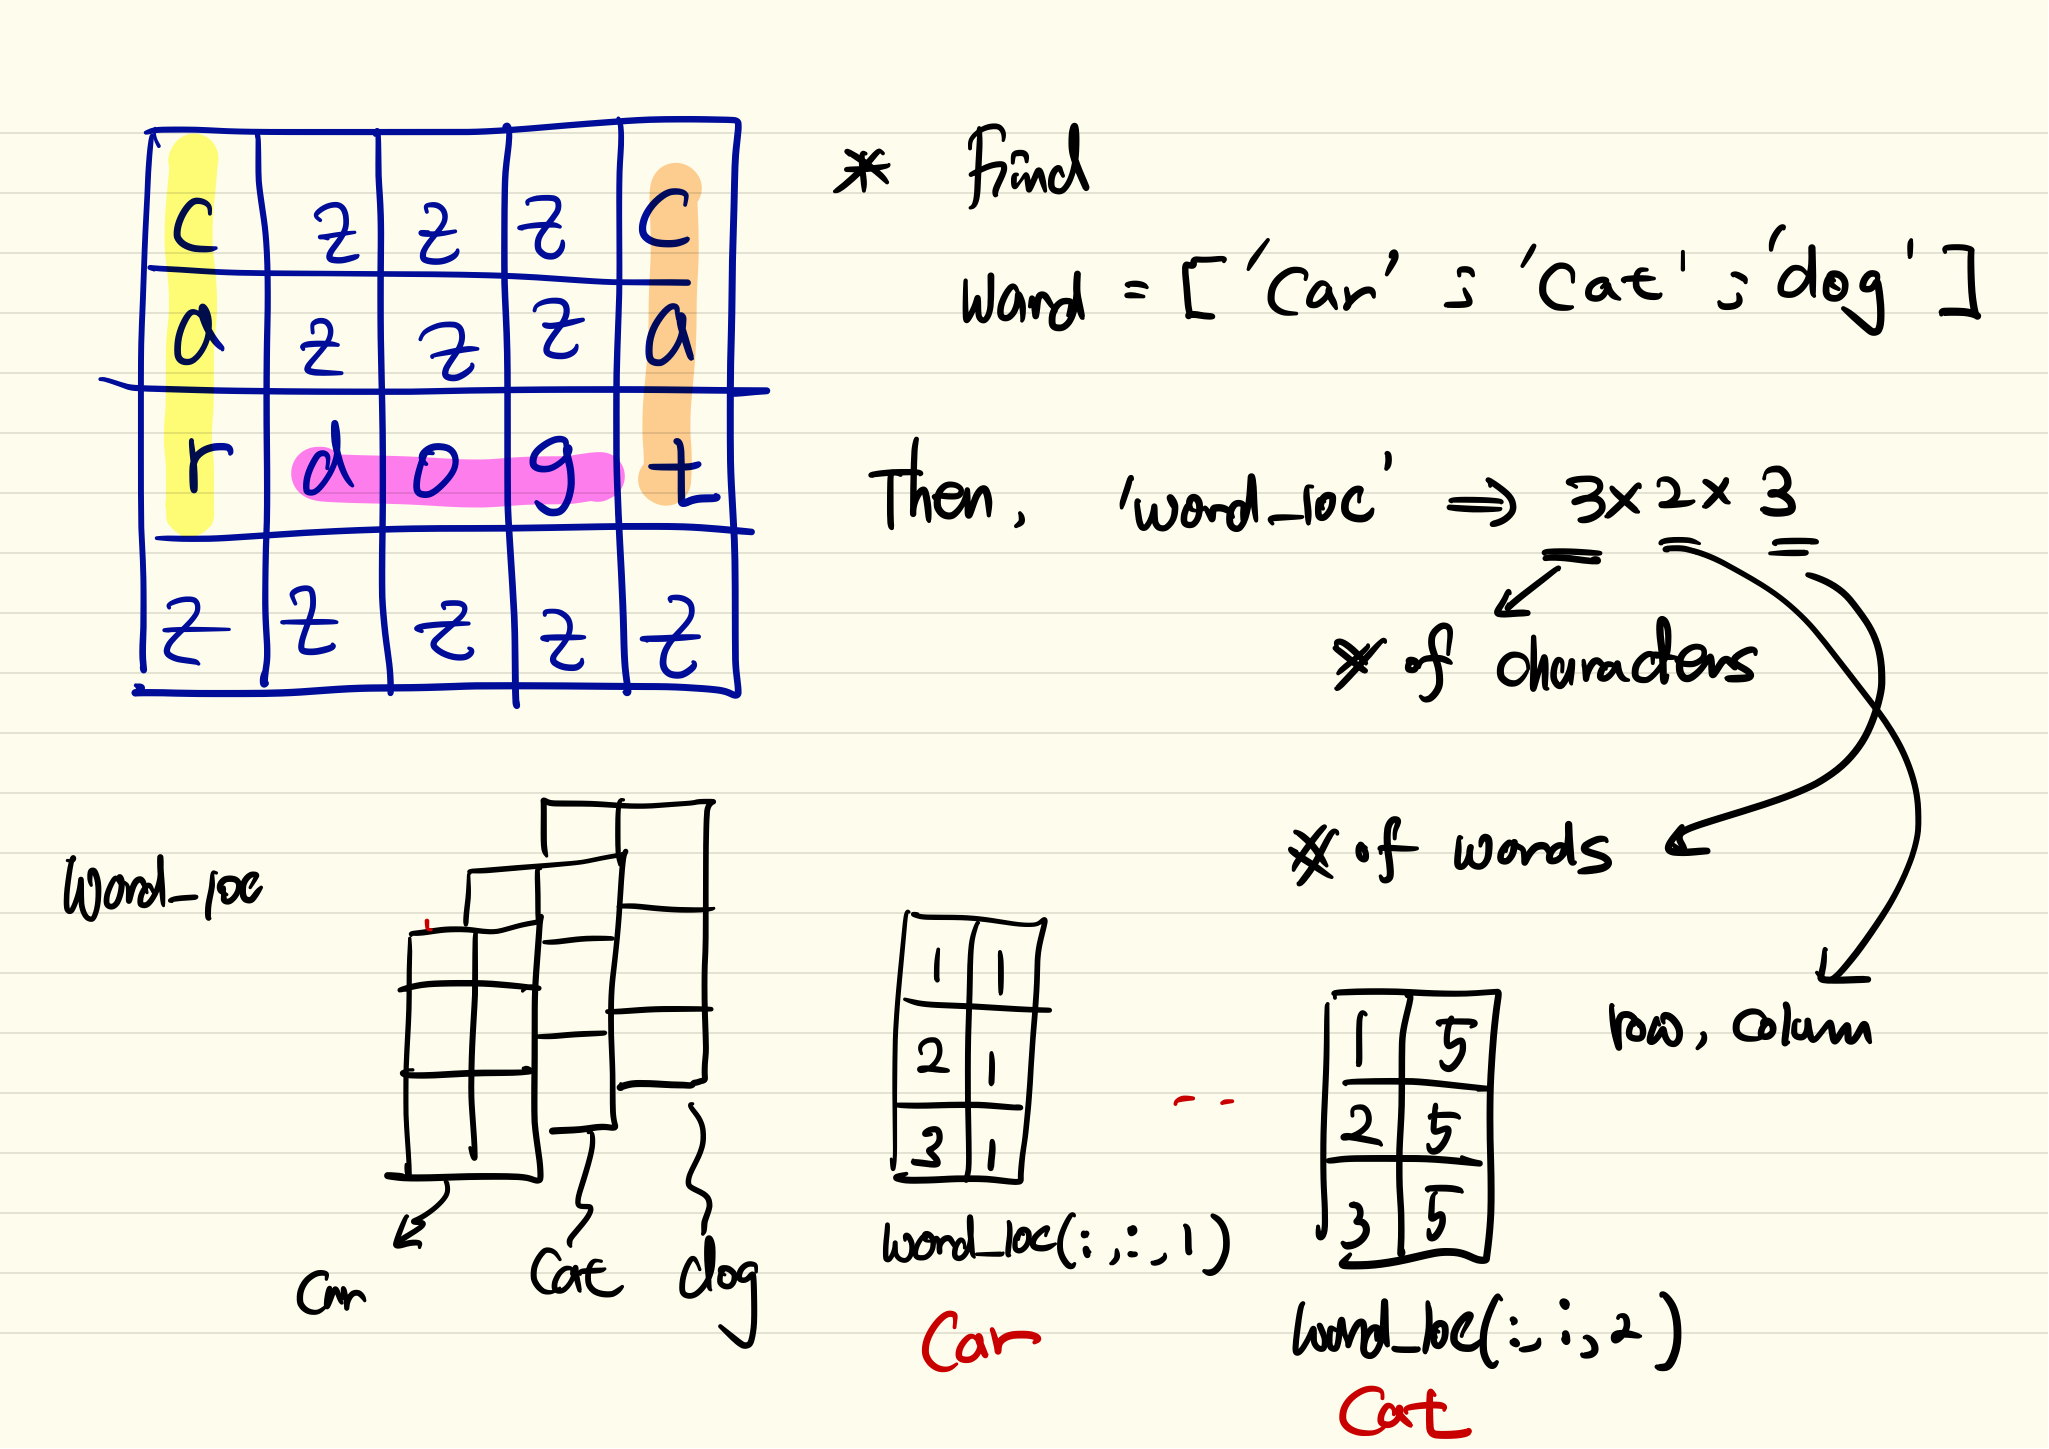 c z z z c
a z z z a
r d o g t
z z z z z
* Find
word = ['car' ; 'cat' ; 'dog']
Then, 'word_loc' ⇒ 3 x 2 x 3
# of characters
# of words
row, column
word_loc
car
cat
dog
1 1
2 1
3 1
word_loc(:,:,1)
car
1 5
2 5
3 5
word_loc(:,:,2)
cat